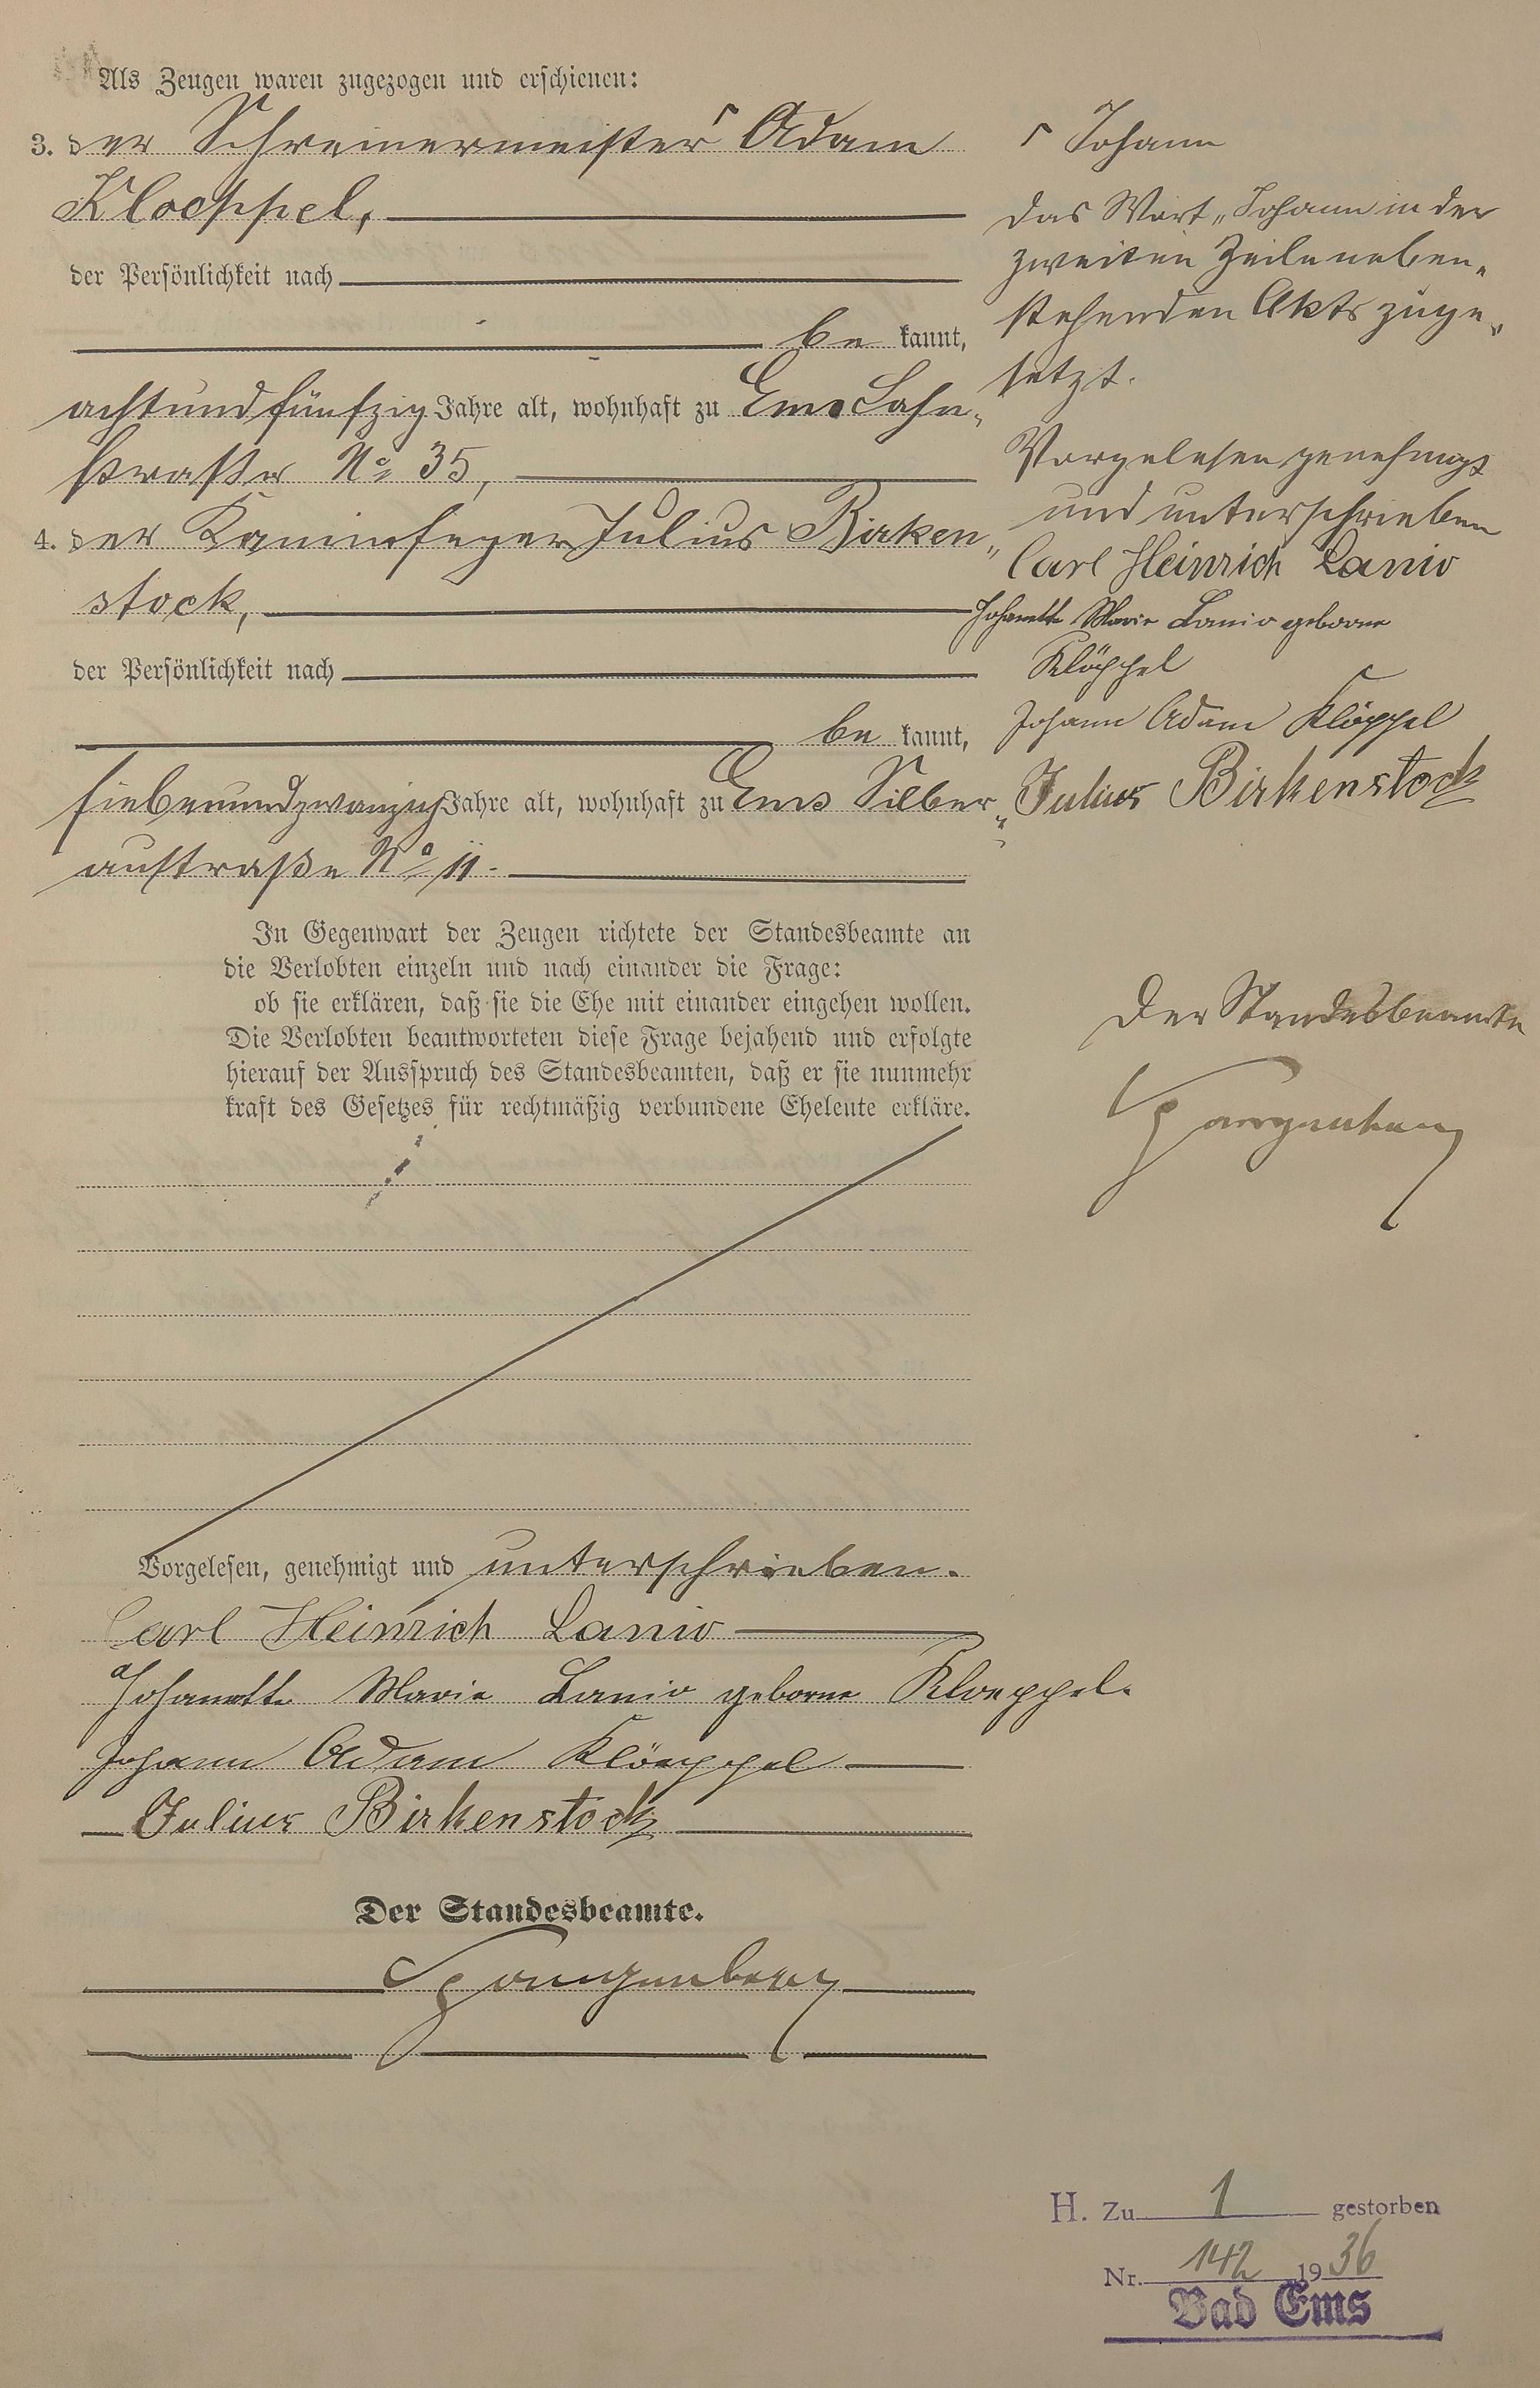 Als Zeugen waren zugezogen und erschienen:
3. der Schreinermeister ⌈ Adam
Kloeppel,
der Persönlichkeit nach
be kannt,
achtundfünfzig Jahre alt, wohnhaft zu Ems Lahn-
straße No 35,
4. der Kaminfeger Julius Birken-
stock,
der Persönlichkeit nach
be kannt,
siebenundzwanzig Jahre alt, wohnhaft zu Ems Silber-
austraße No 11.
In Gegenwart der Zeugen richtete der Standesbeamte an
die Verlobten einzeln und nach einander die Frage:
ob sie erklären, daß sie die Ehe mit einander eingehen wollen.
Die Verlobten beantworteten diese Frage bejahend und erfolgte
hierauf der Ausspruch des Standesbeamten, daß er sie nunmehr
kraft des Gesetzes für rechtmäßig verbundene Eheleute erkläre.
Vorgelesen, genehmigt und unterschrieben.
Carl Heinrich Lanio
Johanette Marie Lanio geborne Kloeppel.
Johann Adam Klöeppel
Julius Birkenstock
Der Standesbeamte.
Spangenberg
⌈ Johann
Das Wort „Johann in der
zweiten Zeile neben-
stehenden Akts zuge-
setzt.
Vorgelesen genehmigt
und unterschrieben
Carl Heinrich Lanio
Johanette Marie Lanio geborne
Klöppel
Johann Adam Klöppel
Julius Birkenstock
Der Standesbeamte
Spangenberg
H. Zu 1 gestorben
Nr. 142 1936
Bad Ems